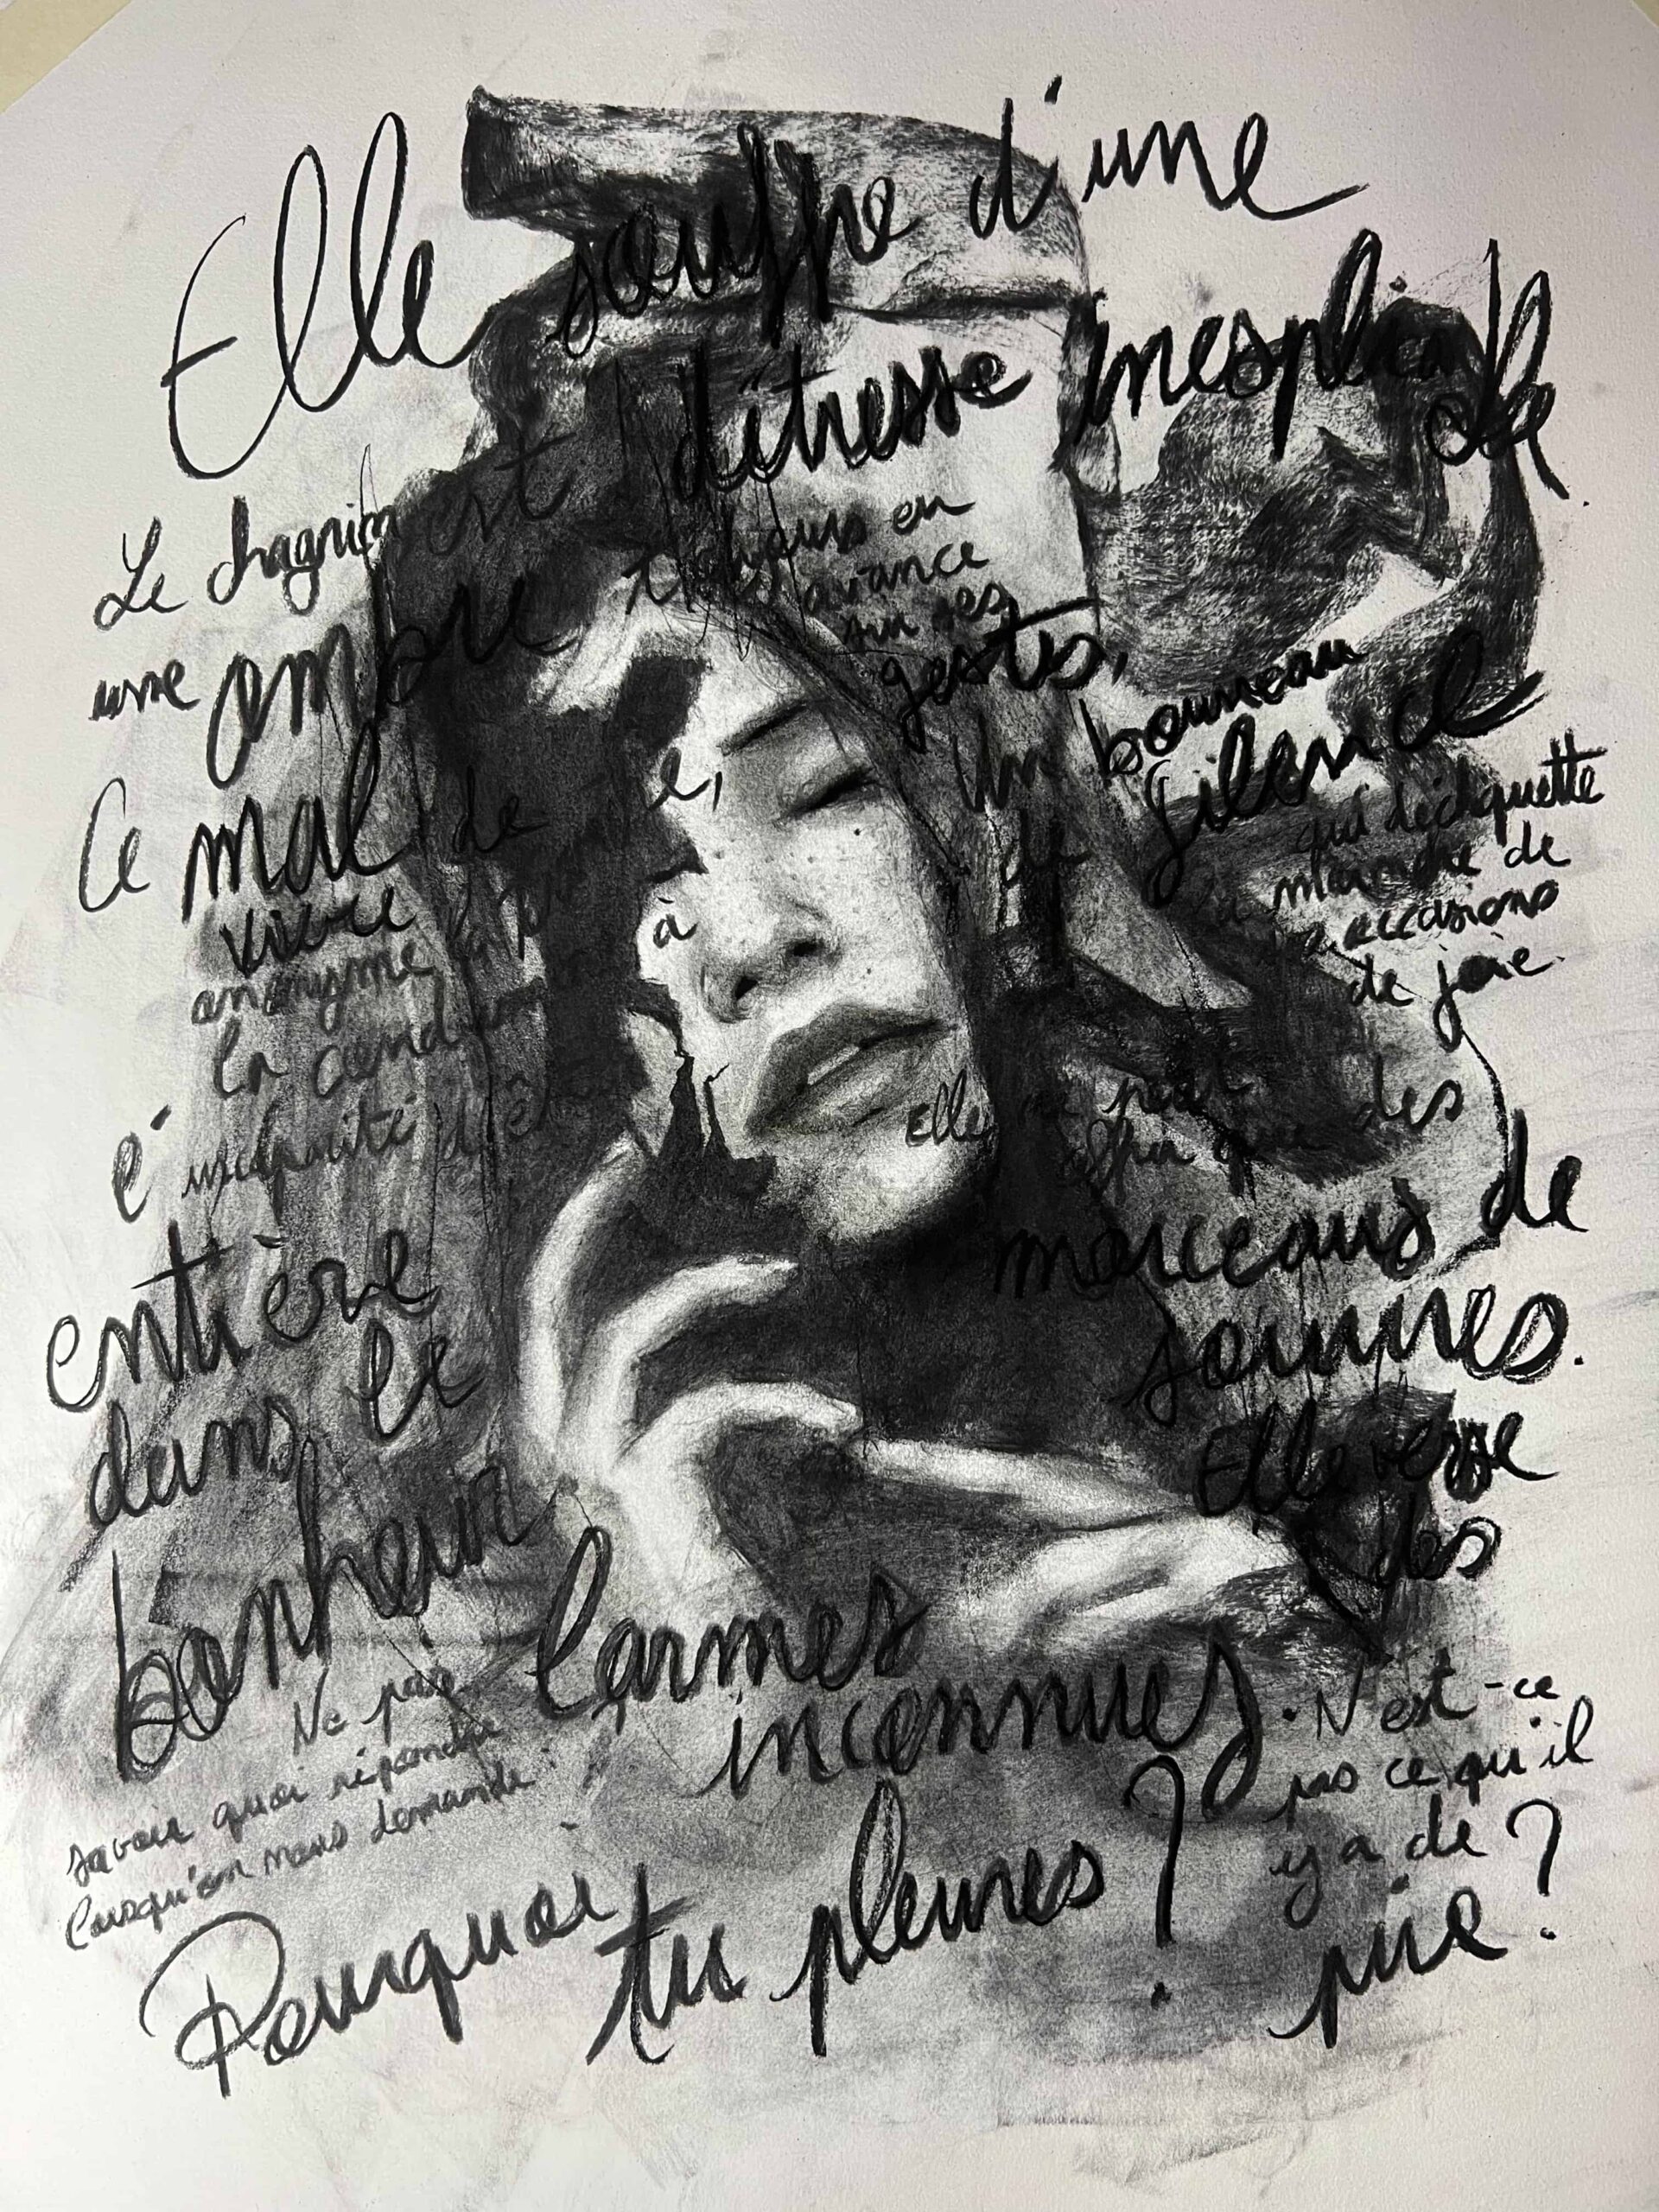 Elle souffre d'une
détresse inexplicable
Le chagrin est toujours en
avance
sur ses
une ombre gestes,
Ce mal de
vivre
anonyme
à
la
incapacité d'être
entière
dans le
bonheur
Un bourreau
de silence
qui déchiquette
moindre de
occasions
de joie.
Elle ne peut
offrir que des
morceaux de
sourires.
Elle verse
des
larmes
inconnues.
Ne pas
savoir quoi répondre
lorsqu'on nous demande :
Pourquoi
tu pleures ?
N'est-ce
pas ce qu'il
y a de
pire ?